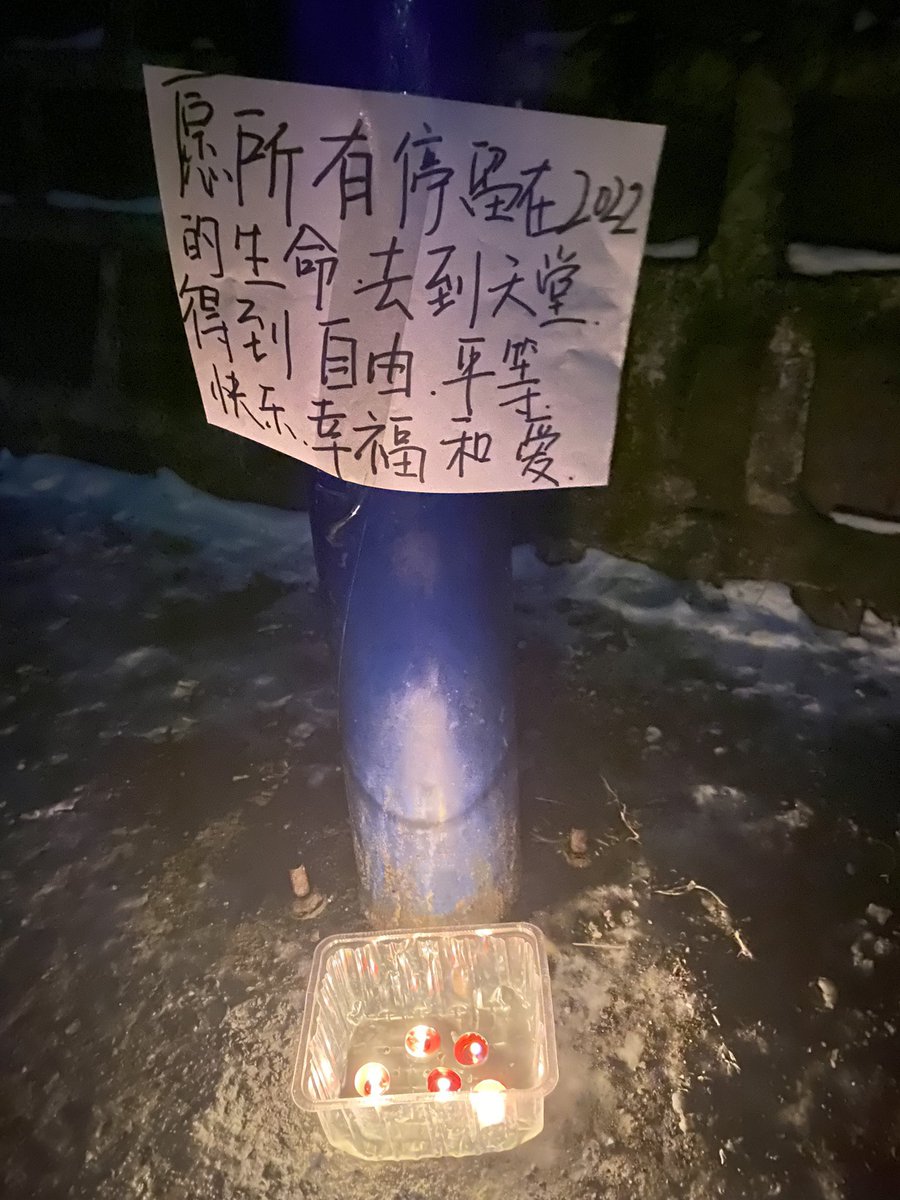 愿所有停留在2022
的生命.去到天堂.
得到自由.平等.
快乐.幸福和爱.